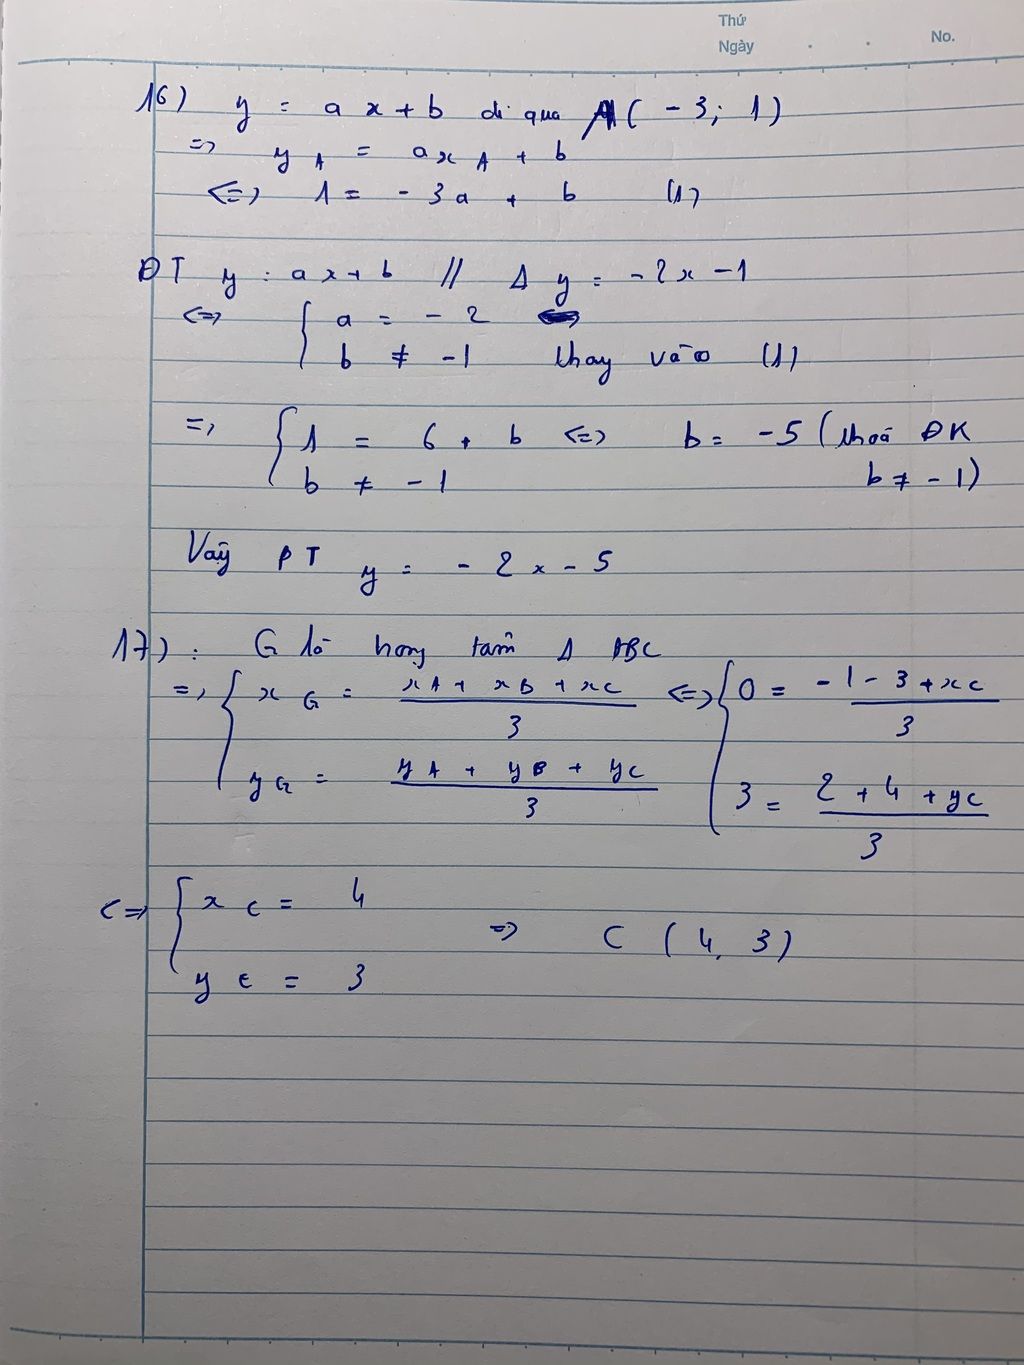 Thứ
Ngày . . No.
16) y = ax + b đi qua A(-3; 1)
=> y A = ax A + b
<=> 1 = -3a + b (1)
ĐT y = ax + b // Δ y = -2x - 1
<=> { a = -2
b ≠ -1 thay vào (1)
=> { 1 = 6 + b <=> b = -5 (thoả ĐK
b ≠ -1 b ≠ -1)
Vậy PT y = -2x - 5
17): G là trong tâm Δ ABC
=> { x G = (xA + xB + xC)/3 <=> { 0 = (-1 - 3 + xC)/3
y G = (yA + yB + yC)/3 3 = (2 + 4 + yC)/3
<=> { x C = 4
=> C (4, 3)
y C = 3